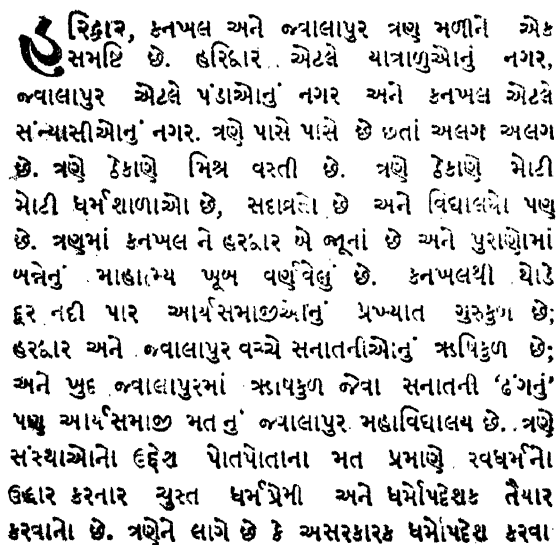 હરિદ્વાર, કનખલ અને જ્વાલાપુર ત્રણુ મળીને એક
સમષ્ટિ છે. હરિદ્વાર એટલે યાત્રાળુઓનું નગર,
જ્વાલાપુર એટલે પંડાઓનું નગર અને કનખલ એટલે
સંન્યાસીઓનું નગર. ત્રણે પાસે પાસે છે છતાં અલગ અલગ
છે. ત્રણે ઠેકાણે મિશ્ર વસ્તી છે. ત્રણે ઠેકાણે મોટી
મોટી ધર્મશાળાઓ છે, સદાવ્રતો છે અને વિદ્યાલયો પણ
છે. ત્રણમાં કનખલ ને હરદ્વાર એ જૂનાં છે અને પુરાણોમાં
બન્નેનું માહાત્મ્ય ખૂબ વર્ણવેલું છે. કનખલથી થોડે
દૂર નદી પાર આર્યસમાજીઓનું પ્રખ્યાત ગુરુકુળ છે;
હરદ્વાર અને જ્વાલાપુર વચ્ચે સનાતનીઓનું ઋષિકુળ છે;
અને ખુદ જ્વાલાપુરમાં ઋષિકુળ જેવા સનાતની ‘ઢંગનું’
પણ આર્યસમાજી મતનું જ્વાલાપુર મહાવિદ્યાલય છે. ત્રણે
સંસ્થાઓનો ઉદ્દેશ પોતપોતાના મત પ્રમાણે સ્વધર્મનો
ઉદ્ધાર કરનાર ચુસ્ત ધર્મપ્રેમી અને ધર્મોપદેશક તૈયાર
કરવાનો છે. ત્રણેને લાગે છે કે અસરકારક ધર્મોપદેશ કરવા